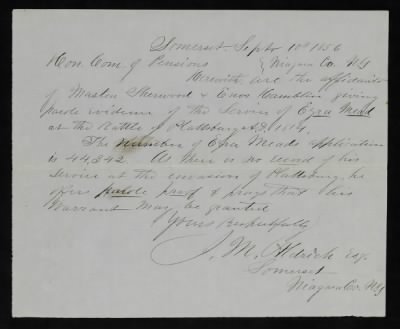 Somerset Septr 10th 1856
Hon. Com. of Pensions } Niagara Co. NY
Herewith are the affidavits
of Maston Sherwood & Enos Hamblin giving
parole evidence of the Service of Ezra Mead
at the Battle of Plattsburgh A.D. 1814.
The number of Ezra Meads application
is 44,342. As there is no record of his
service at the invasion of Plattsburg, he
offers parole proof & prays that his
Warrant may be granted
Yours Respectfully
J. M. Aldrich Esq.
Somerset
Niagara Co. NY